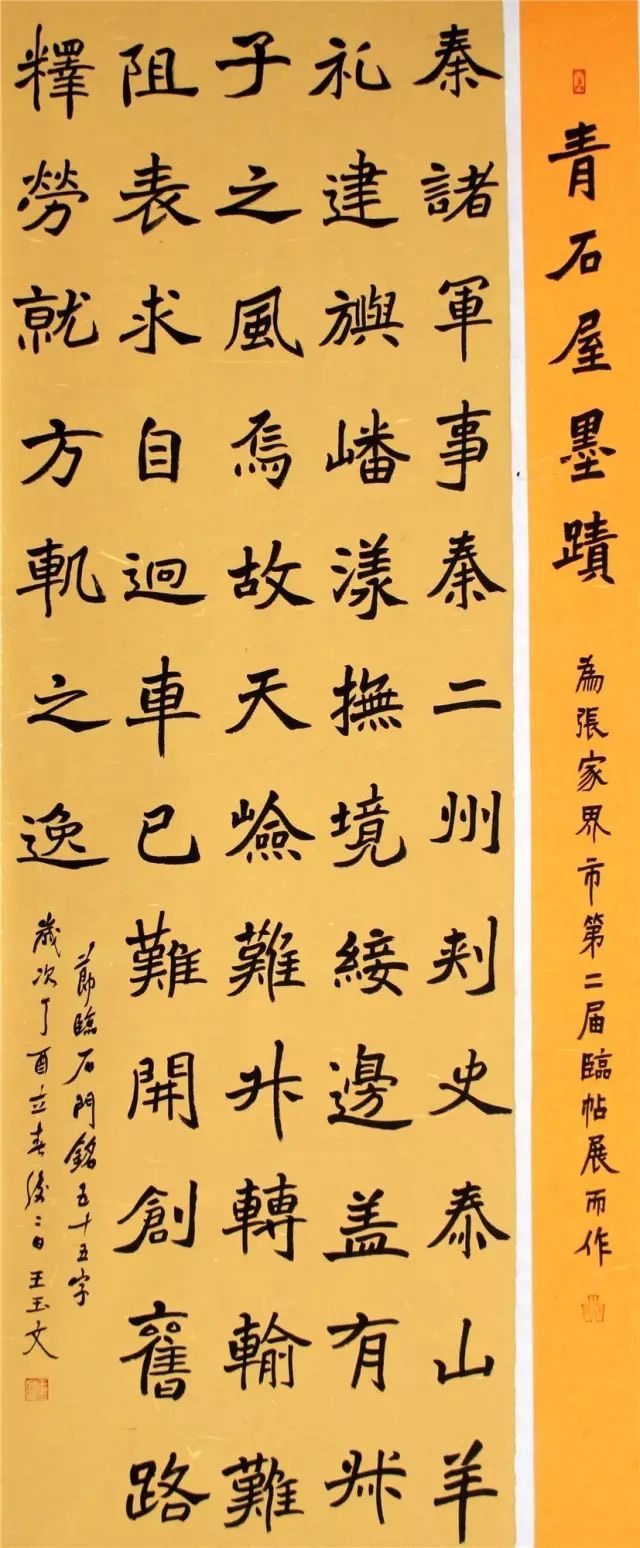 青石屋墨蹟
為張家界市第二届臨帖展而作
秦諸軍事秦二州刾史泰山羊
礼建旟嶓漾撫境綏邊盖有叔
子之風焉故天嶮難升轉輸難
阻表求自逈車已難開創舊路
釋勞就方軌之逸
節臨石門銘五十五字
歲次丁酉立春後二日王玉文